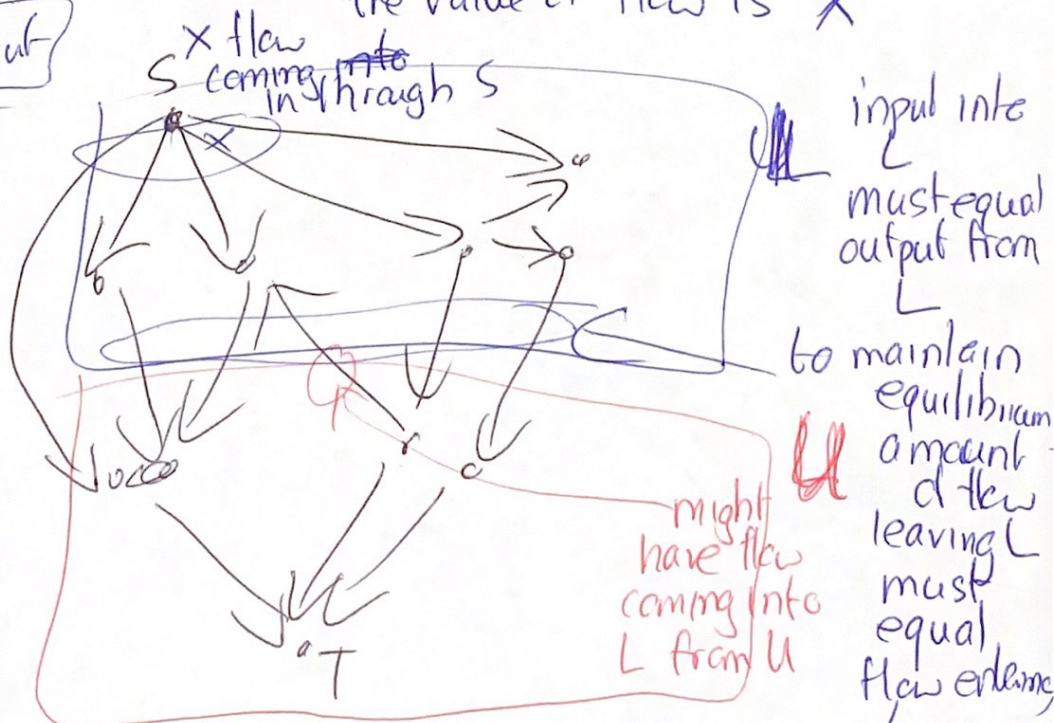 the value of flow is X
X flow
S coming into
in through S
X
L
input into
L
must equal
output from
L
to maintain
equilibrium
amount
of flow
leaving L
must
equal
flow entering
U
might
have flow
coming into
L from U
T